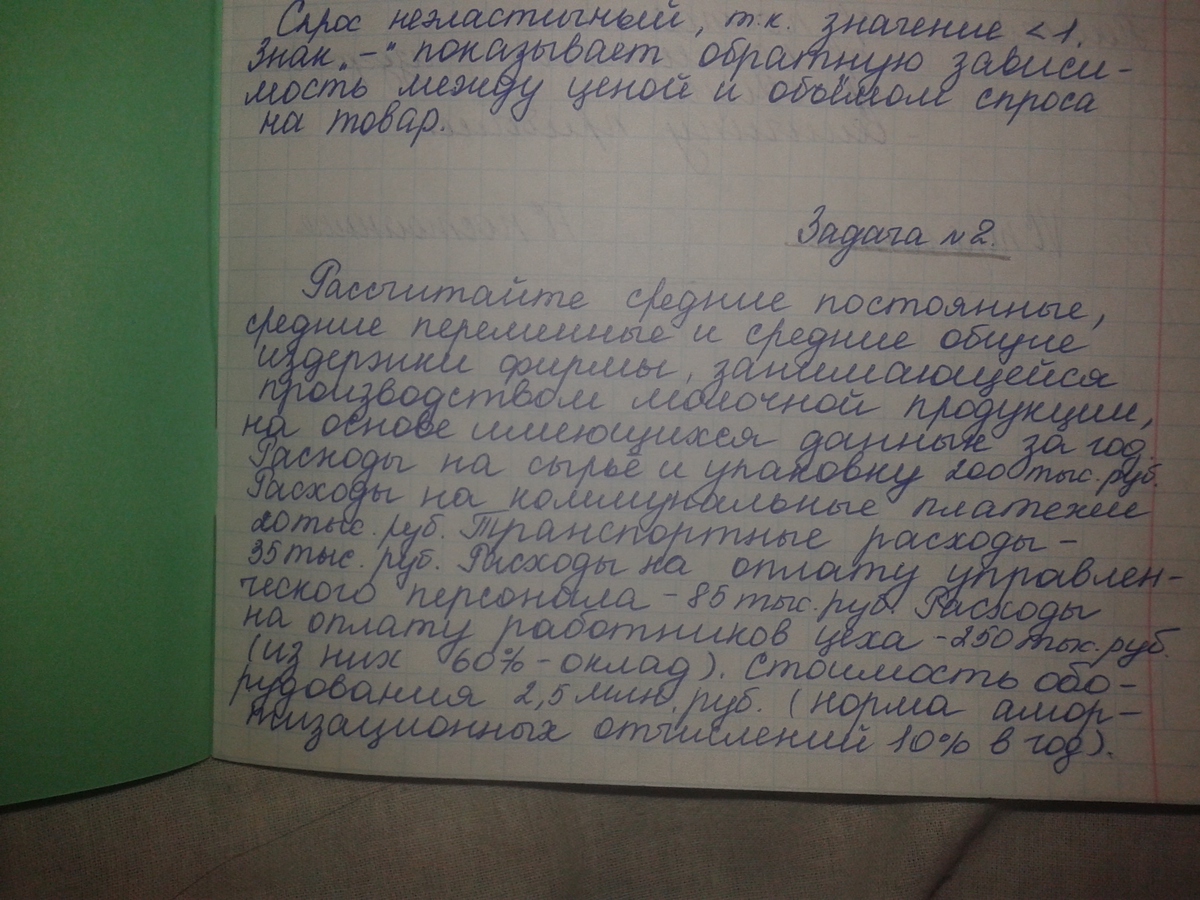 Спрос неэластичный, т.к. значение < 1.
Знак „-“ показывает обратную зависи-
мость между ценой и объёмом спроса
на товар.
Задача №2.
Рассчитайте средние постоянные,
средние переменные и средние общие
издержки фирмы, занимающейся
производством молочной продукции,
на основе имеющихся данных за год.
Расходы на сырьё и упаковку 200 тыс. руб.
Расходы на коммунальные платежи
20 тыс. руб. Транспортные расходы -
35 тыс. руб. Расходы на оплату управлен-
ческого персонала - 85 тыс. руб. Расходы
на оплату работников цеха - 250 тыс. руб.
(из них 60% - оклад). Стоимость обо-
рудования 2,5 млн. руб. (норма амор-
тизационных отчислений 10% в год).